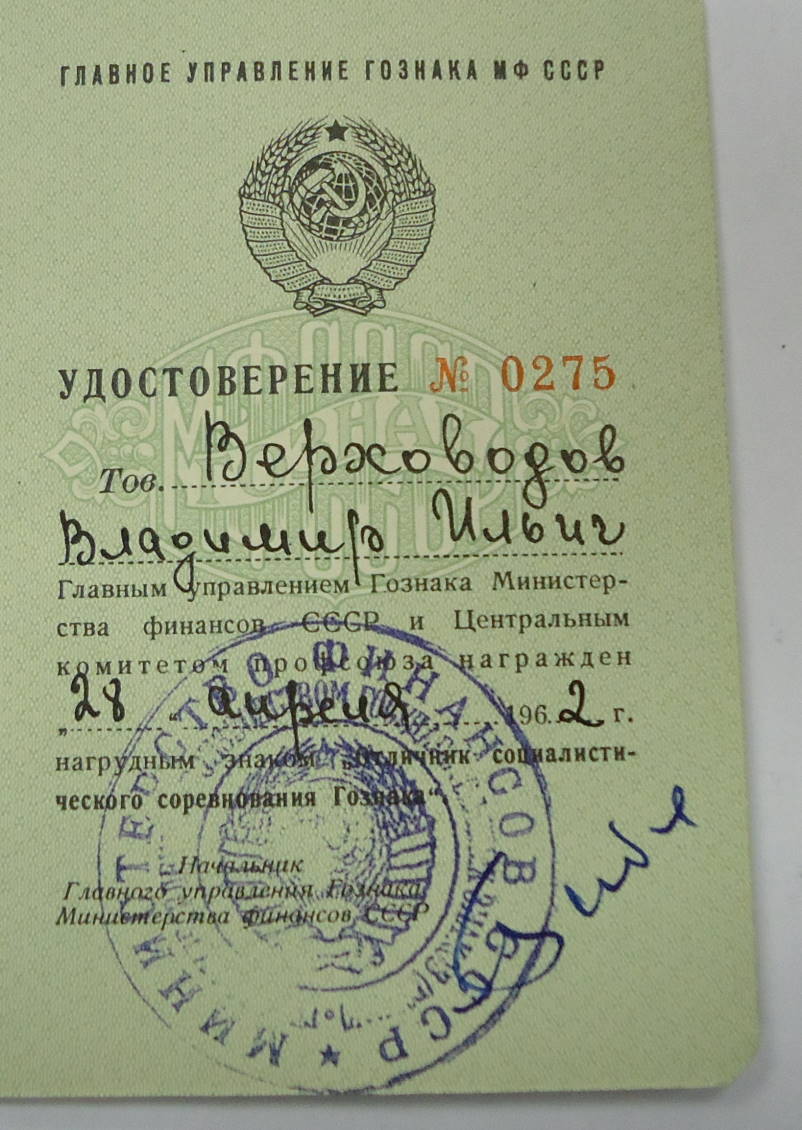 ГЛАВНОЕ УПРАВЛЕНИЕ ГОЗНАКА МФ СССР
УДОСТОВЕРЕНИЕ № 0275
Тов. Верховодов
Владимир Ильич
Главным управлением Гознака Министер-
ства финансов СССР и Центральным
комитетом профсоюза награжден
„28 “ апреля 1962 г.
нагрудным знаком „Отличник социалисти-
ческого соревнования Гознака“.
Начальник
Главного управления Гознака
Министерства финансов СССР
МИНИСТЕРСТВО ФИНАНСОВ СССР